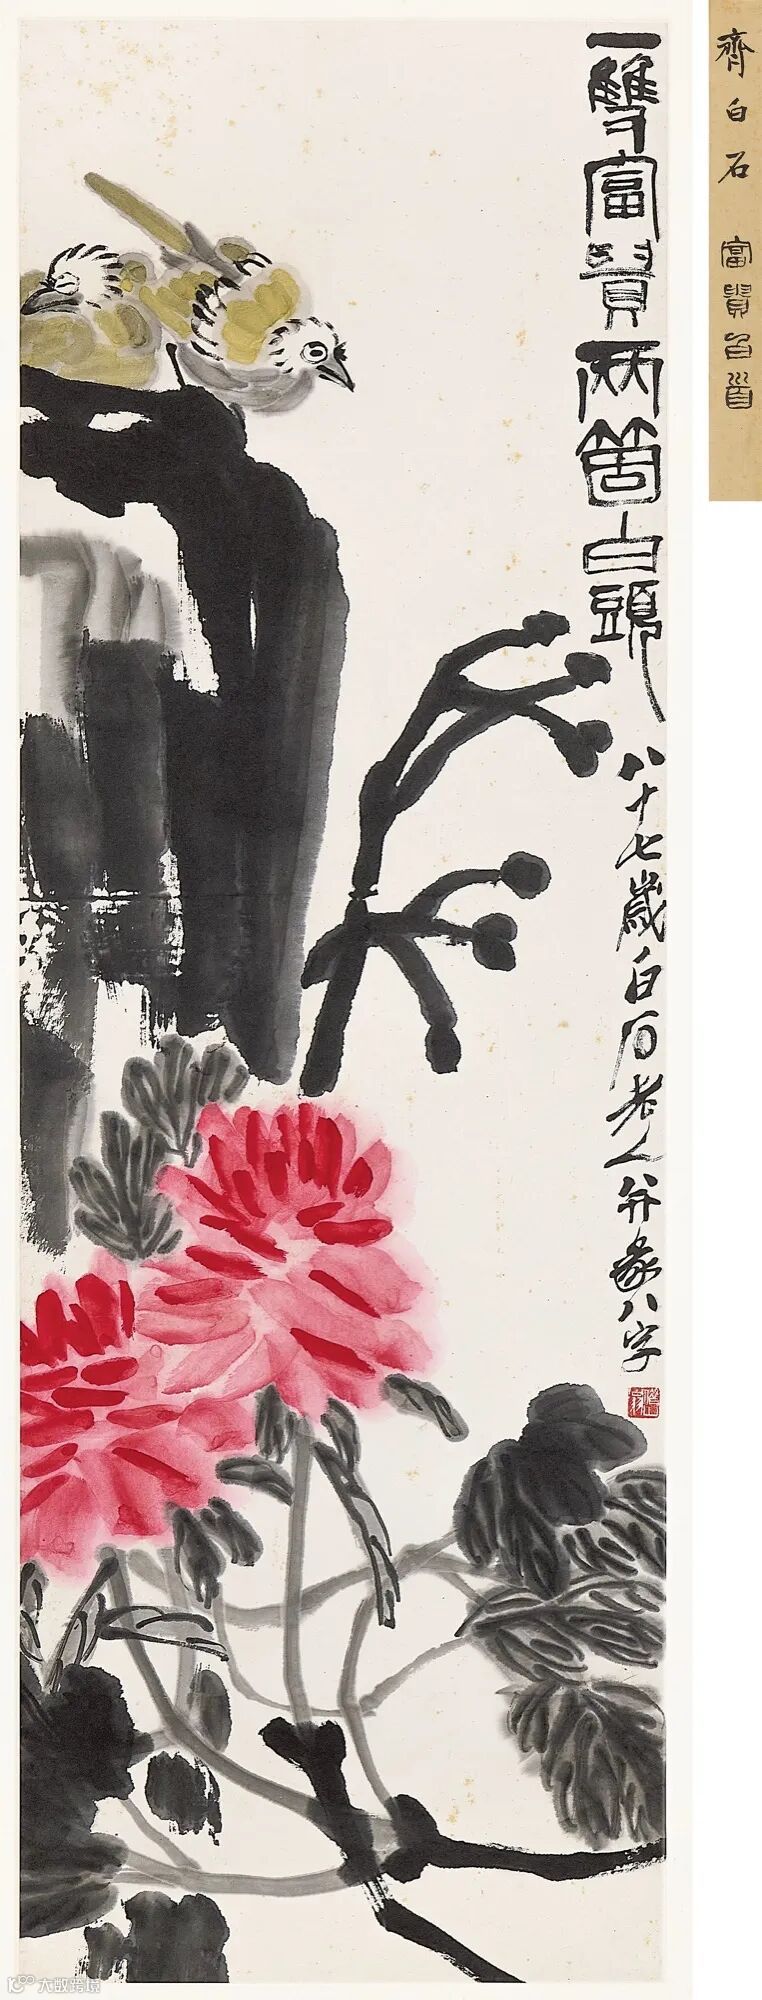 一雙富貴兩箇白頭
八十七歲白石老人并篆八字
齊白石 富貴白首
大数跨境